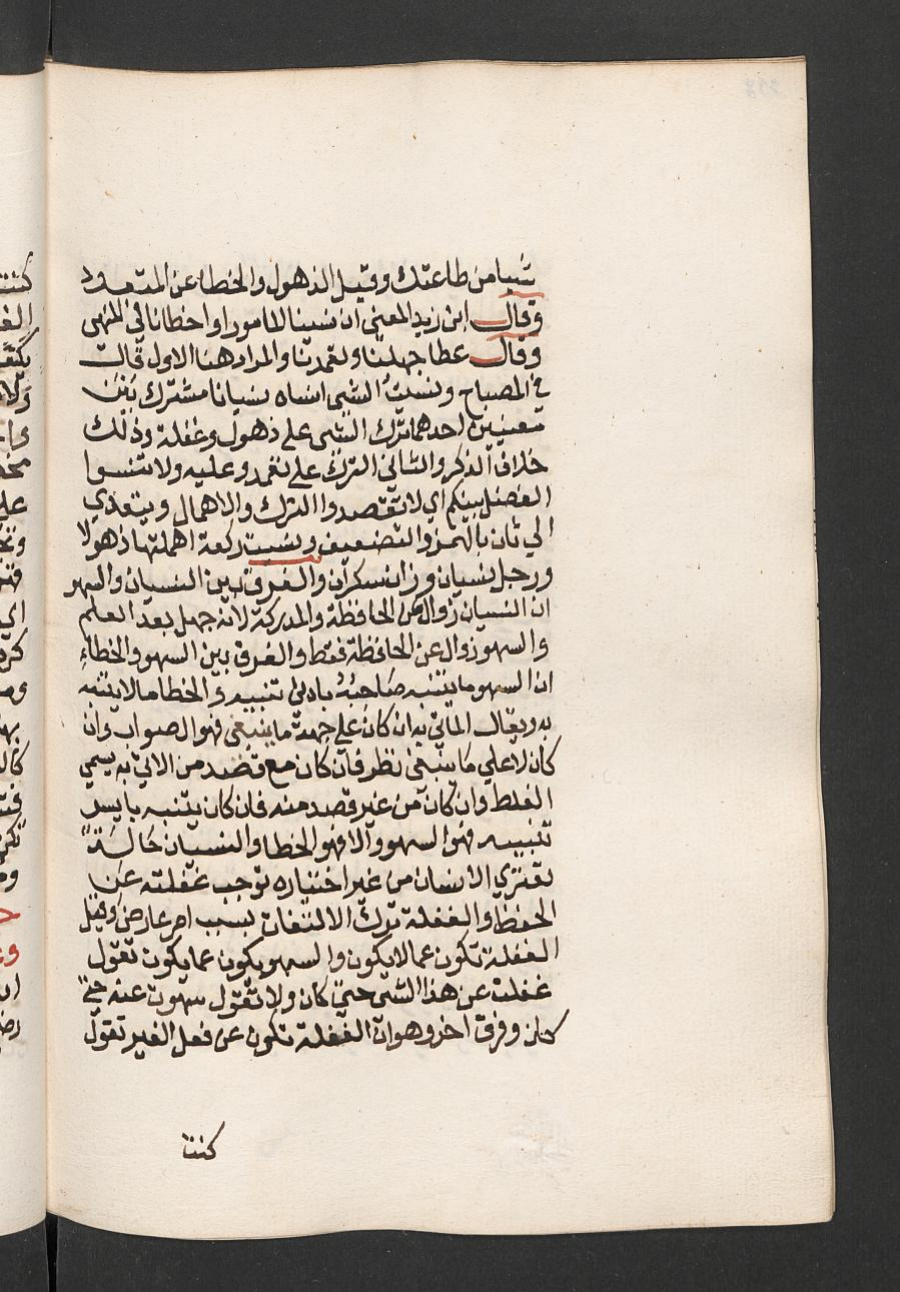 شيا من طاعتك وقيل الذهول والخطا عن المتعود
وقال ابن زيد المعني ان نسينا المامور او اخطانا في المنهى
وقال عطا جهلنا وتعمدنا والمراد هنا الاول قال
في المصباح ونسيت الشى انساه نسيانا مشترك بين
معنيين احدهما ترك الشى على ذهول وغفلة وذلك
خلاف الذكر والثاني الترك على تعمد وعليه ولا تنسوا
الفضل بينكم اي لا تقصدوا الترك والاهمال ويتعدي
الي ثان بالهمز والتضعيف ونسيت ركعة اهملتها ذهولا
ورجل نسيان وزان سكران والفرق بين النسيان والسهو
ان النسيان زوال عن الحافظة والمدركة لانه جهل بعد العلم
والسهو زوال عن الحافظة فقط والفرق بين السهو والخطاء
ان السهو ما يتنبه صاحبه بادنى تنبيه والخطا ما لا يتنبه
به ويقال الماتي به ان كان على جهة ما ينبغي فهو الصواب وان
كان لا علي ما ينبغي نظر فان كان مع قصد من الاتي به يسمي
الغلط وان كان من غير قصد منه فان كان يتنبه بايسر
تنبيه فهو السهو والا فهو الخطا والنسيان حالة
تعتري الانسان من غير اختياره توجب غفلته عن
الحفظ والغفلة ترك الالتفات بسبب امر عارض وقيل
الغفلة تكون عما لا يكون والسهو يكون عما يكون تقول
غفلت عن هذا الشى حتى كان ولا تقول سهوت عنه حتى
كان وفرق اخر وهو ان الغفلة تكون عن فعل الغير تقول
كنت